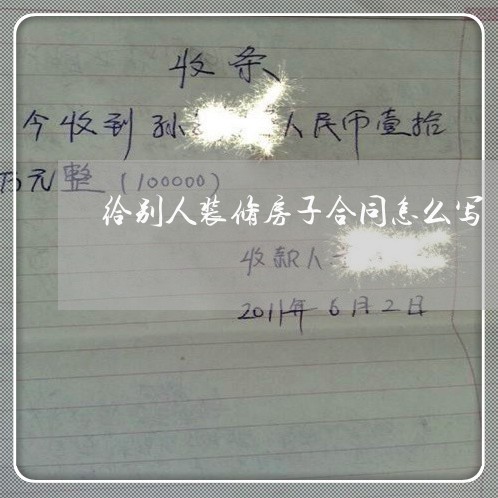 收条
今收到孙 人民币壹拾
万元整（100000）
给别人装修房子合同怎么写
收款人
2011年6月2日